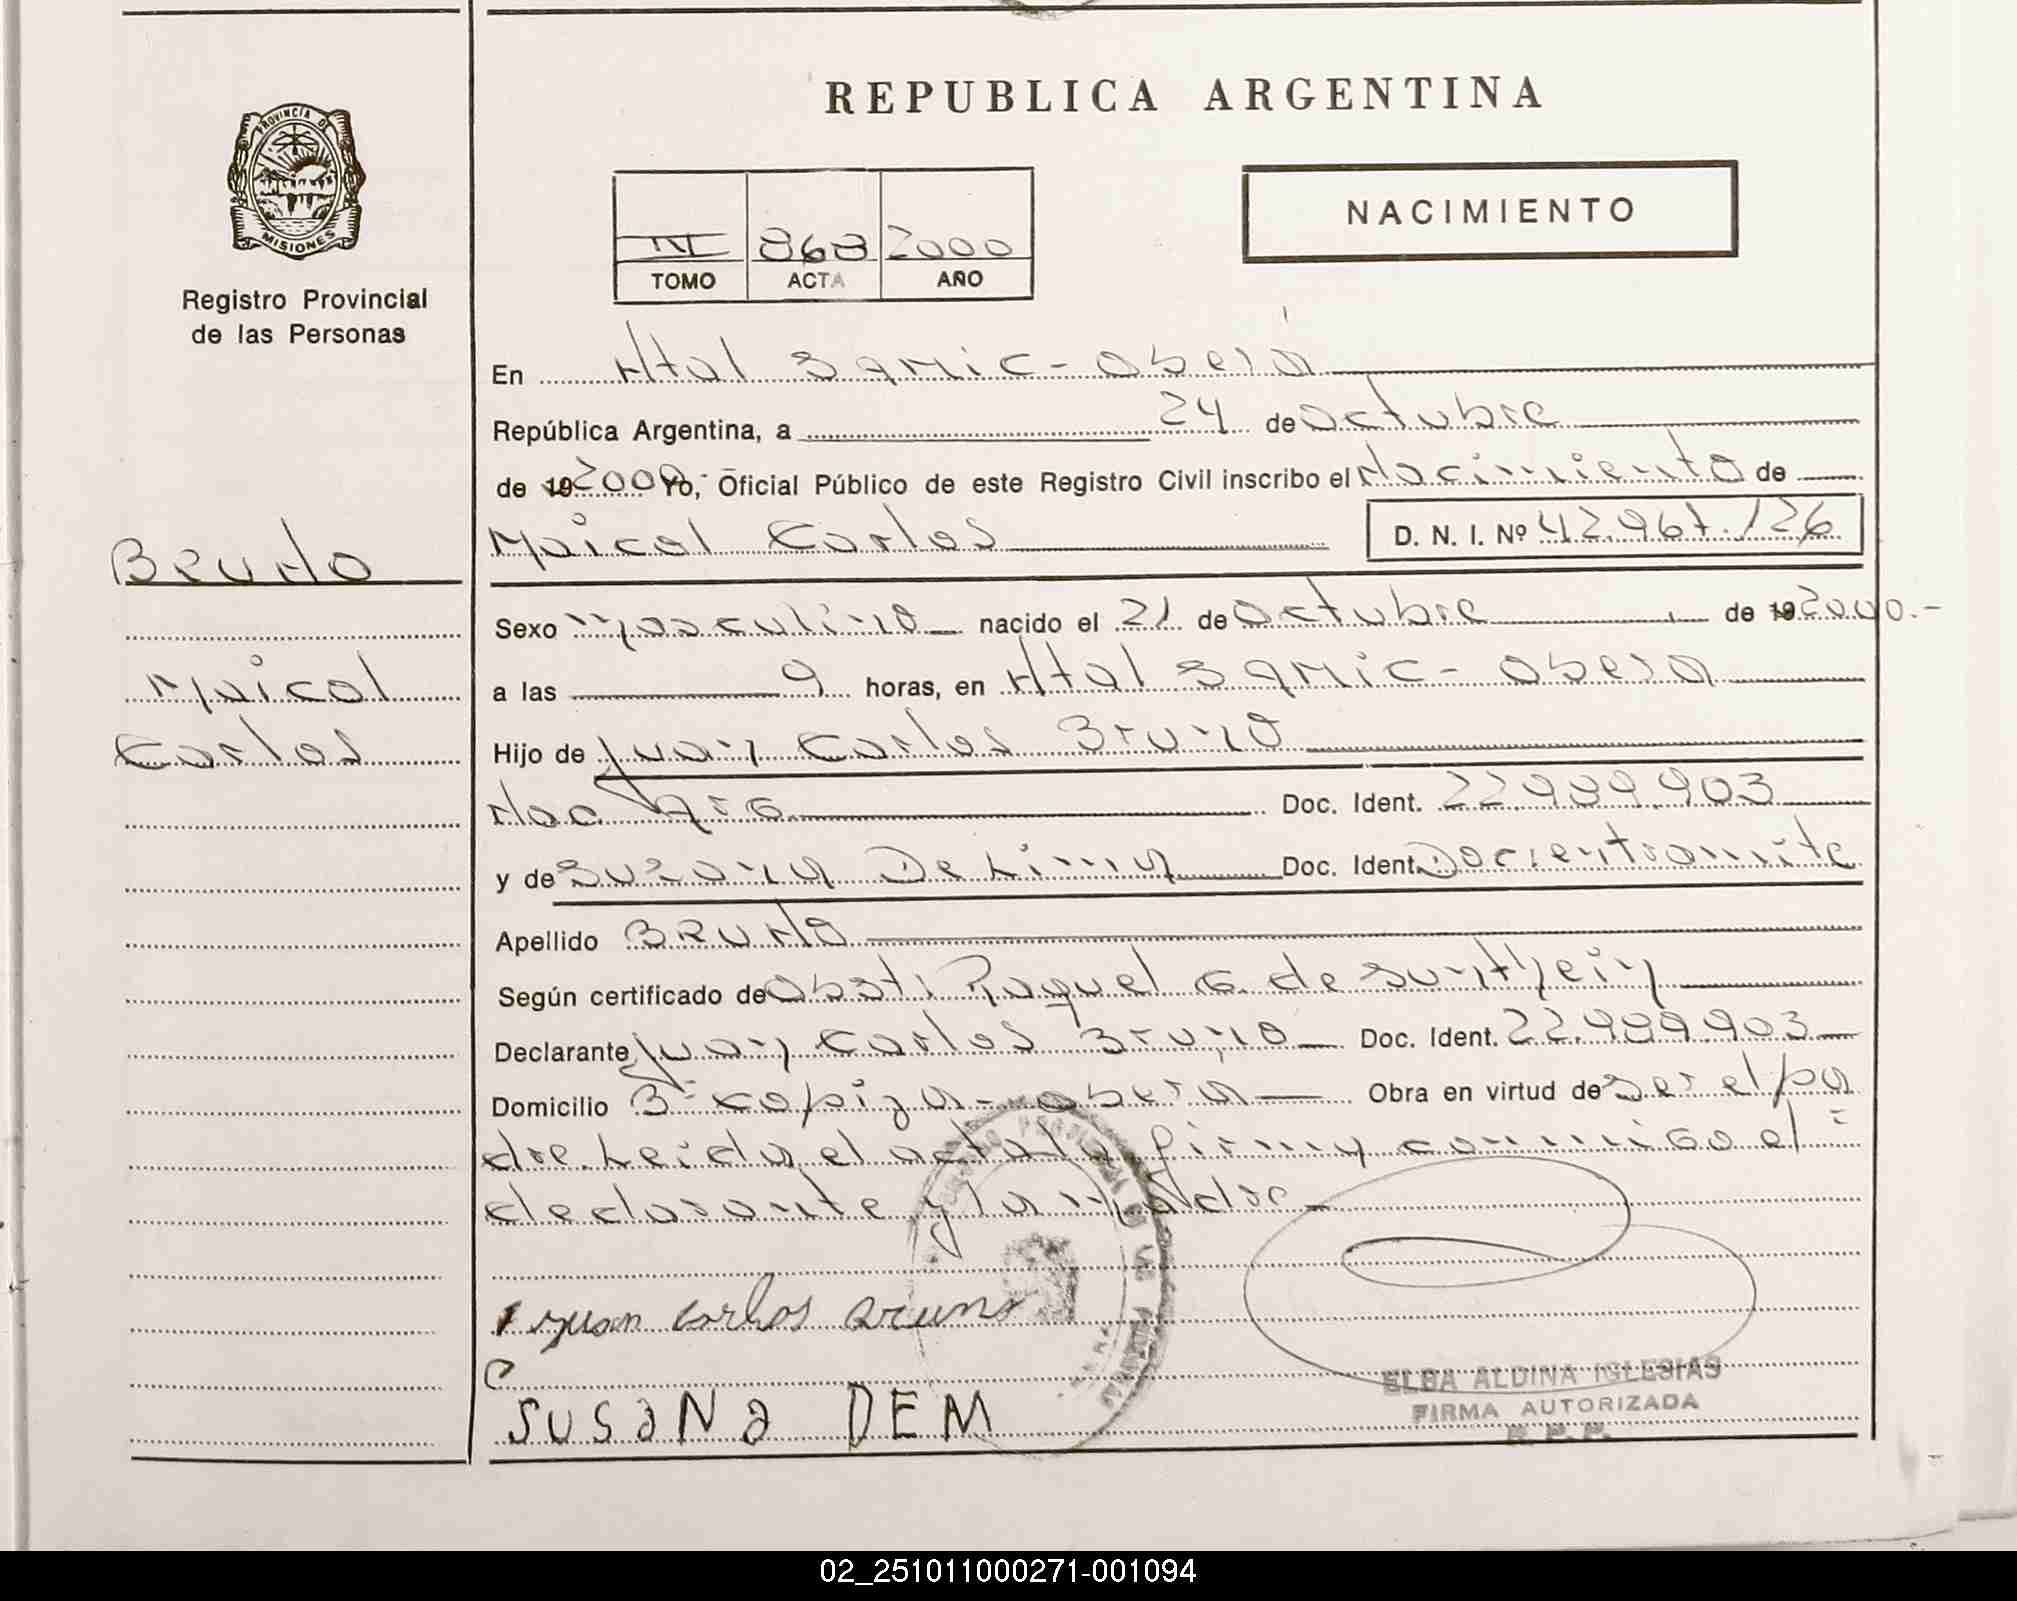 REPUBLICA ARGENTINA
PROVINCIA DE
MISIONES
Registro Provincial
de las Personas
NACIMIENTO
868 2000
TOMO ACTA AÑO
En Htal Samic - Oberá
República Argentina, a 24 de Octubre
de 19 2000 Yo, Oficial Público de este Registro Civil inscribo el Nacimiento de
Bruno
Maicol Carlos D. N. I. Nº 42.967.126
Sexo Masculino nacido el 21 de Octubre de 19 2000.-
Maicol
a las 9 horas, en Htal Samic - Obera
Carlos
Hijo de Juan Carlos Bruno
Nac Arg Doc. Ident. 22.989.903
y de Suzana De Lima Doc. Ident. Doc. en tramite
Apellido BRUNO
Según certificado de Obst. Raquel G. de
Declarante Juan Carlos Bruno Doc. Ident. 22.989.903
Domicilio Bº Copiza - Obera Obra en virtud de ser el pa
dre. Leida el acta la firmy conmigo el
declarante y la madre
Juan Carlos Bruno
SUSANA DEM
ELBA ALDINA IGLESIAS
FIRMA AUTORIZADA
R. P. P.
02_251011000271-001094